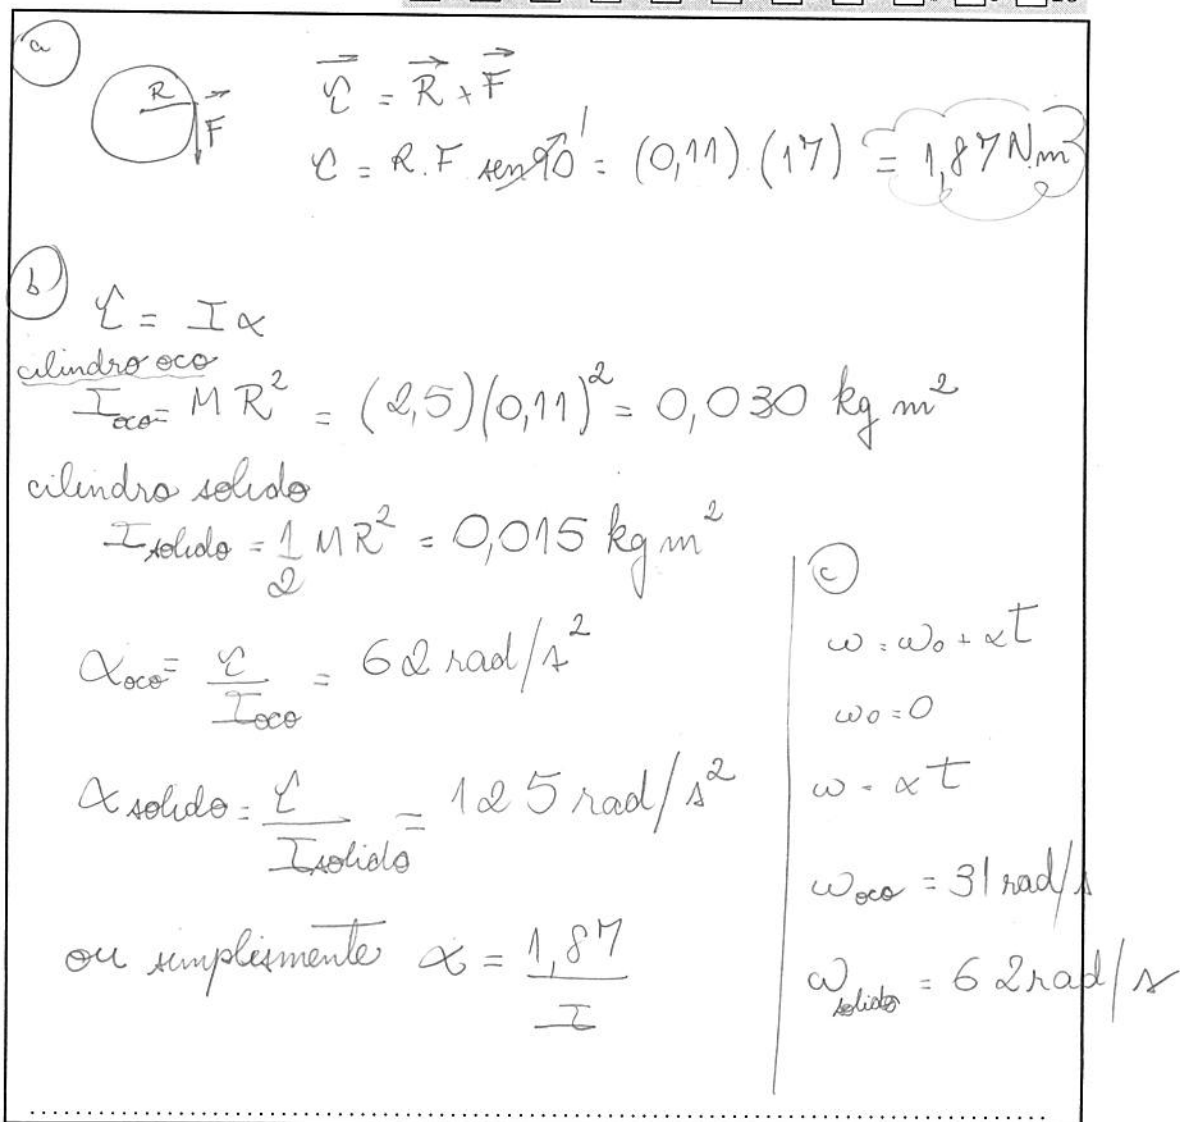 a
R F
τ = R × F
τ = R.F sen90 1 = (0,11).(17) = 1,87 N.m
b
τ = Iα
cilindro oco
Ioco = MR² = (2,5)(0,11)² = 0,030 kg m²
cilindro solido
Isolido = 1/2 MR² = 0,015 kg m²
αoco = τ/Ioco = 62 rad/s²
αsolido = τ/Isolido = 125 rad/s²
ou simplismente α = 1,87/I
c
ω = ω0 + αt
ω0 = 0
ω = αt
ωoco = 31 rad/s
ωsolido = 62 rad/s